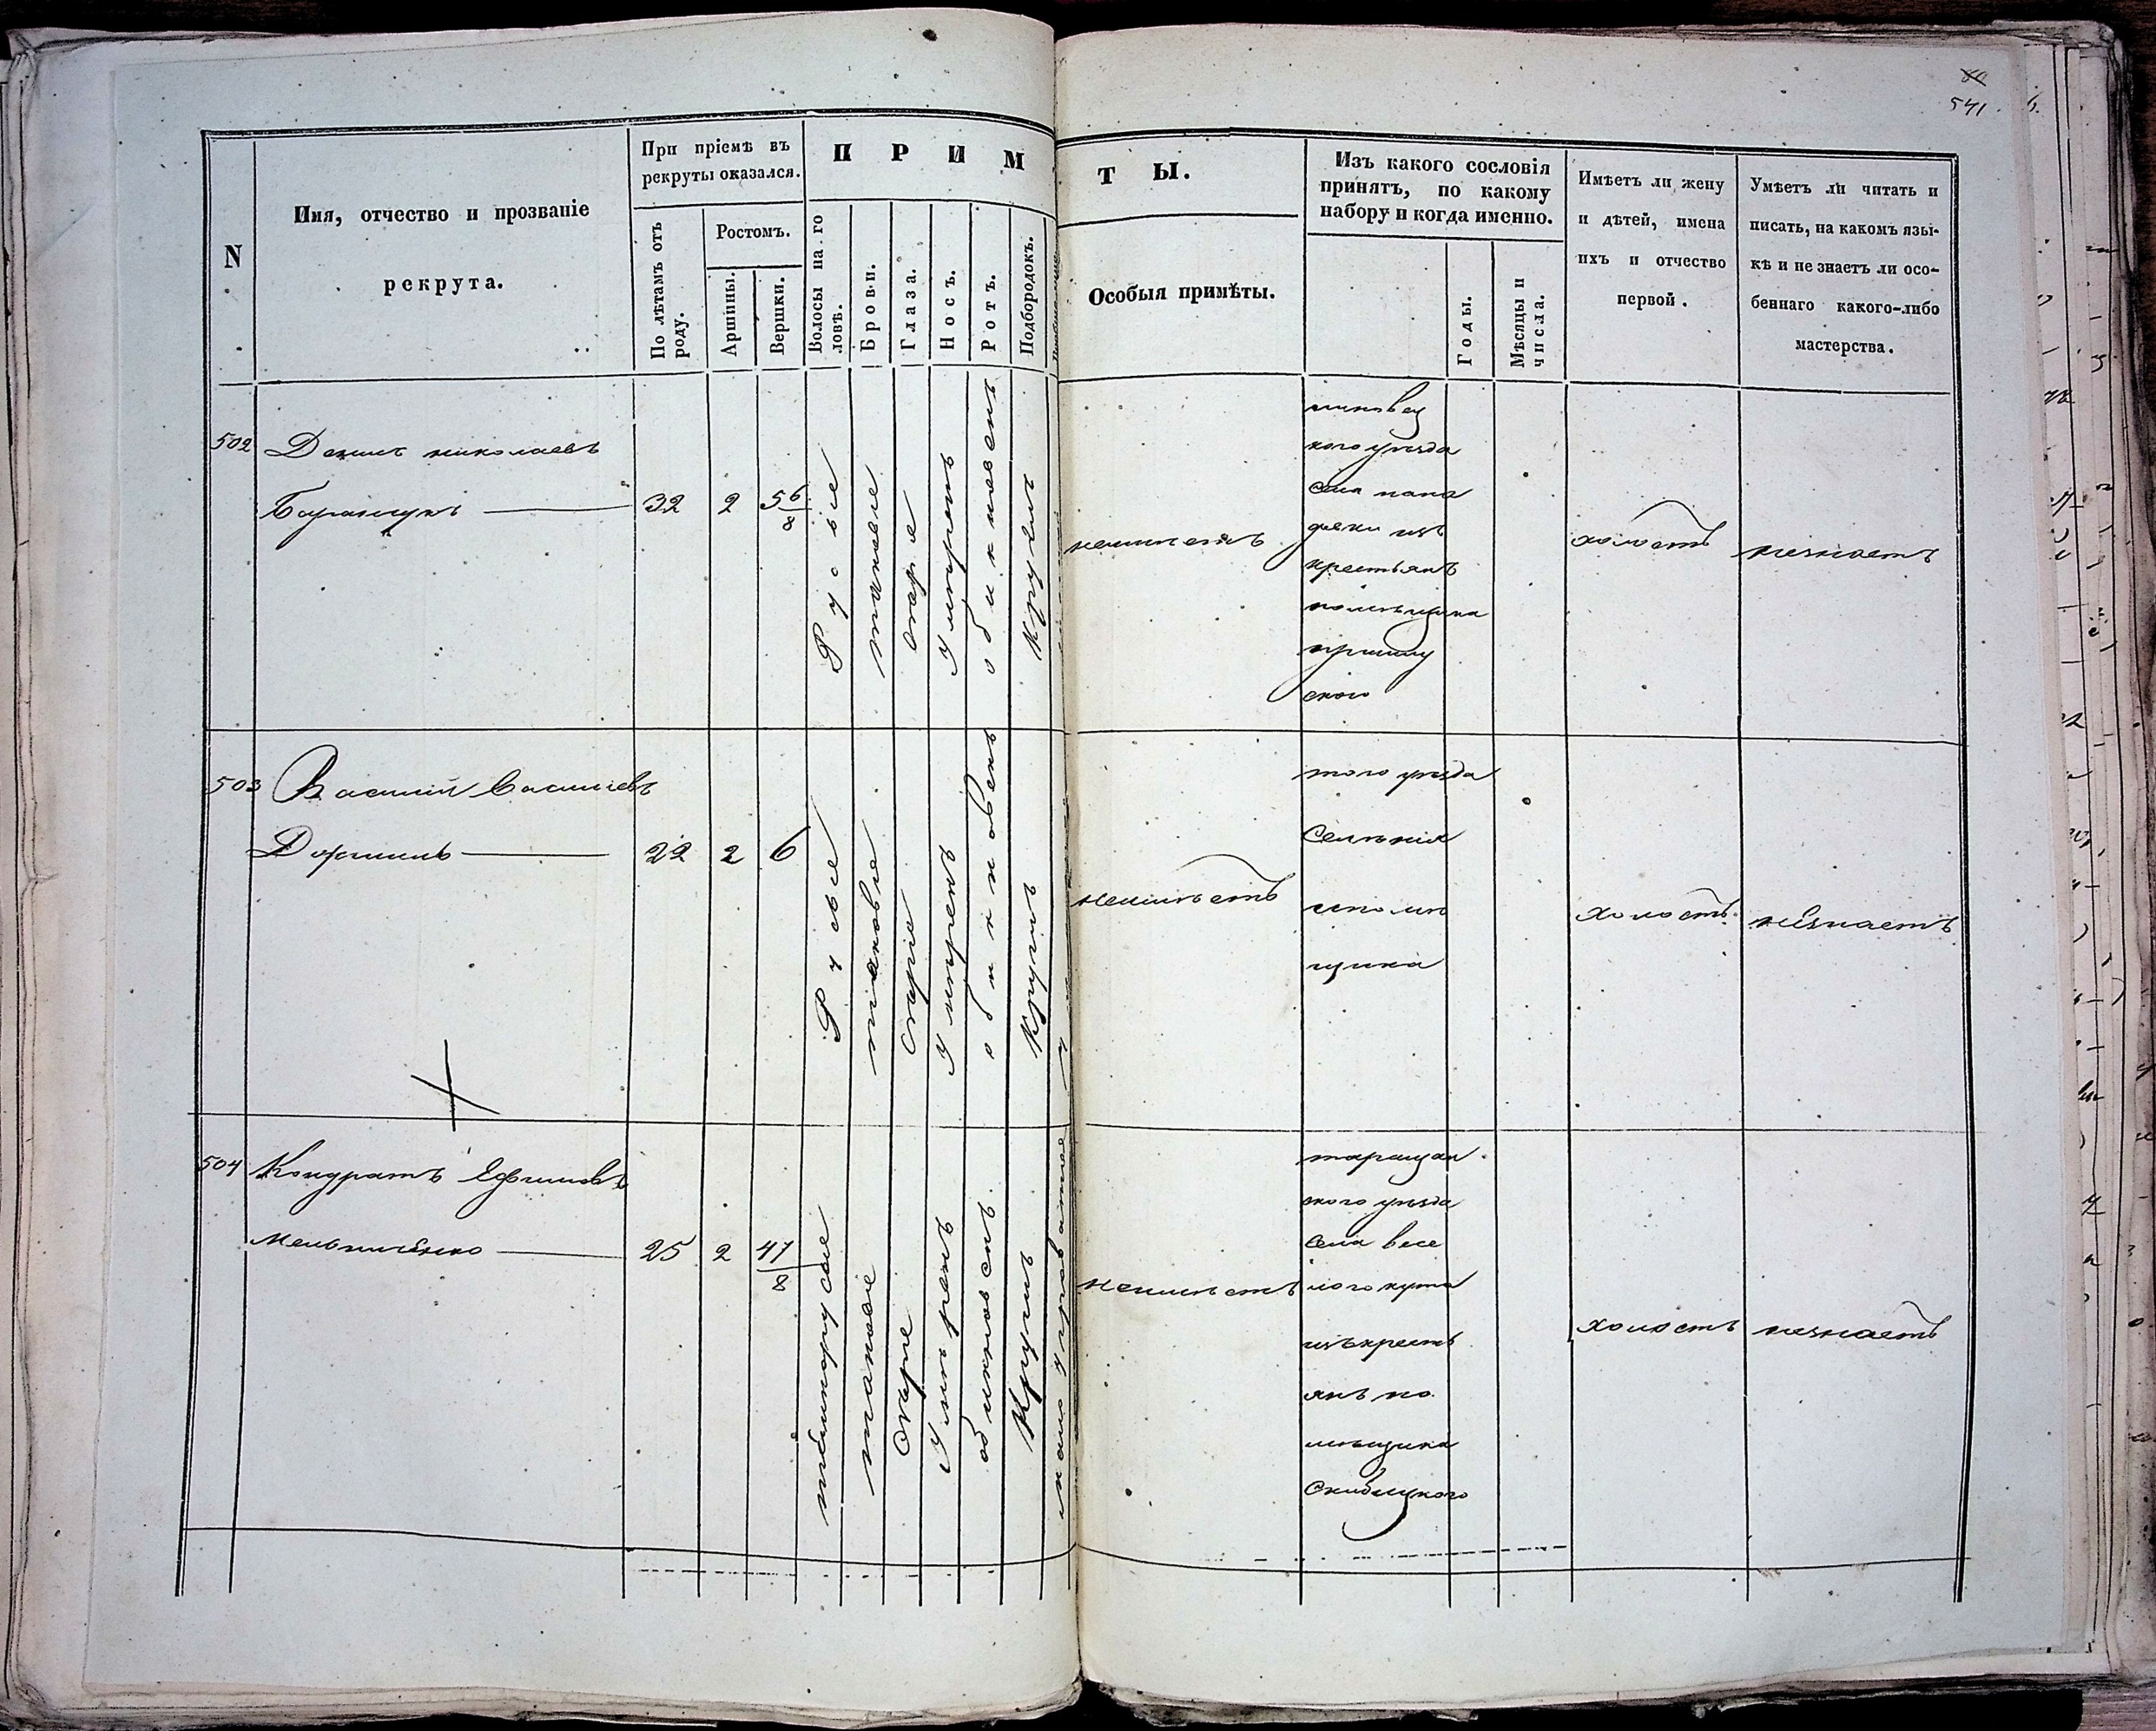 541
N
Имя, отчество и прозваніе
рекрута.
При пріемѣ въ
рекруты оказался.
По лѣтамъ отъ
роду.
Ростомъ.
Аршины.
Вершки.
П Р И М
Т Ы.
Волосы на го
ловѣ.
Брови.
Глаза.
Носъ.
Ротъ.
Подбородокъ.
Особыя примѣты.
Изъ какого сословія
принятъ, по какому
набору и когда именно.
Годы.
Мѣсяцы и
числа.
Имѣетъ ли жену
и дѣтей, имена
ихъ и отчество
первой.
Умѣетъ ли читать и
писать, на какомъ язы-
кѣ и не знаетъ ли осо-
беннаго какого-либо
мастерства.
502
николаевъ
32
2
5 6/8
Русые
таковые
серые
умеренъ
обикновенъ
Круглъ
неимѣетъ
кого уѣзда
села
изъ
крестьянъ
помѣщика
ского
холостъ
незнаетъ
503
Василий Васильевъ
22
2
6
Русые
таковые
серые
умеренъ
обикновенъ
Круглъ
неимѣетъ
того уѣзда
щика
холостъ
незнаетъ
504
Кондратъ Ефимовъ
Мельниченко
25
2
4 7/8
темнорусые
таковые
серые
умѣренъ
обикновенъ
Круглъ
неимѣетъ
таращан
ского уѣзда
села весе
лого кута
изъ кресть
янъ по
мѣщика
Скибицкого
холостъ
незнаетъ